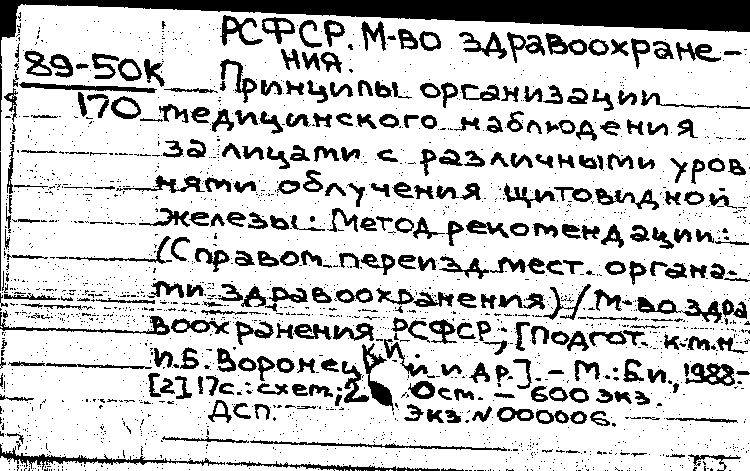 РСФСР. М-во здравоохране-
ния.
89-50к
170
Принципы организации
медицинского наблюдения
за лицами с различными уров
нями облучения щитовидной
железы: Метод рекомендации:
(Справом переизд. мест. органа-
ми здравоохранения) / М-во здра
воохранения РСФСР; [Подгот. к.м.н
И.Б. Воронец к.и. и др.]. - М.: Б.и., 1988.-
[2] 17с.: схем; 2 Ост. - 600 экз.
ДСП. Экз. N 000006.